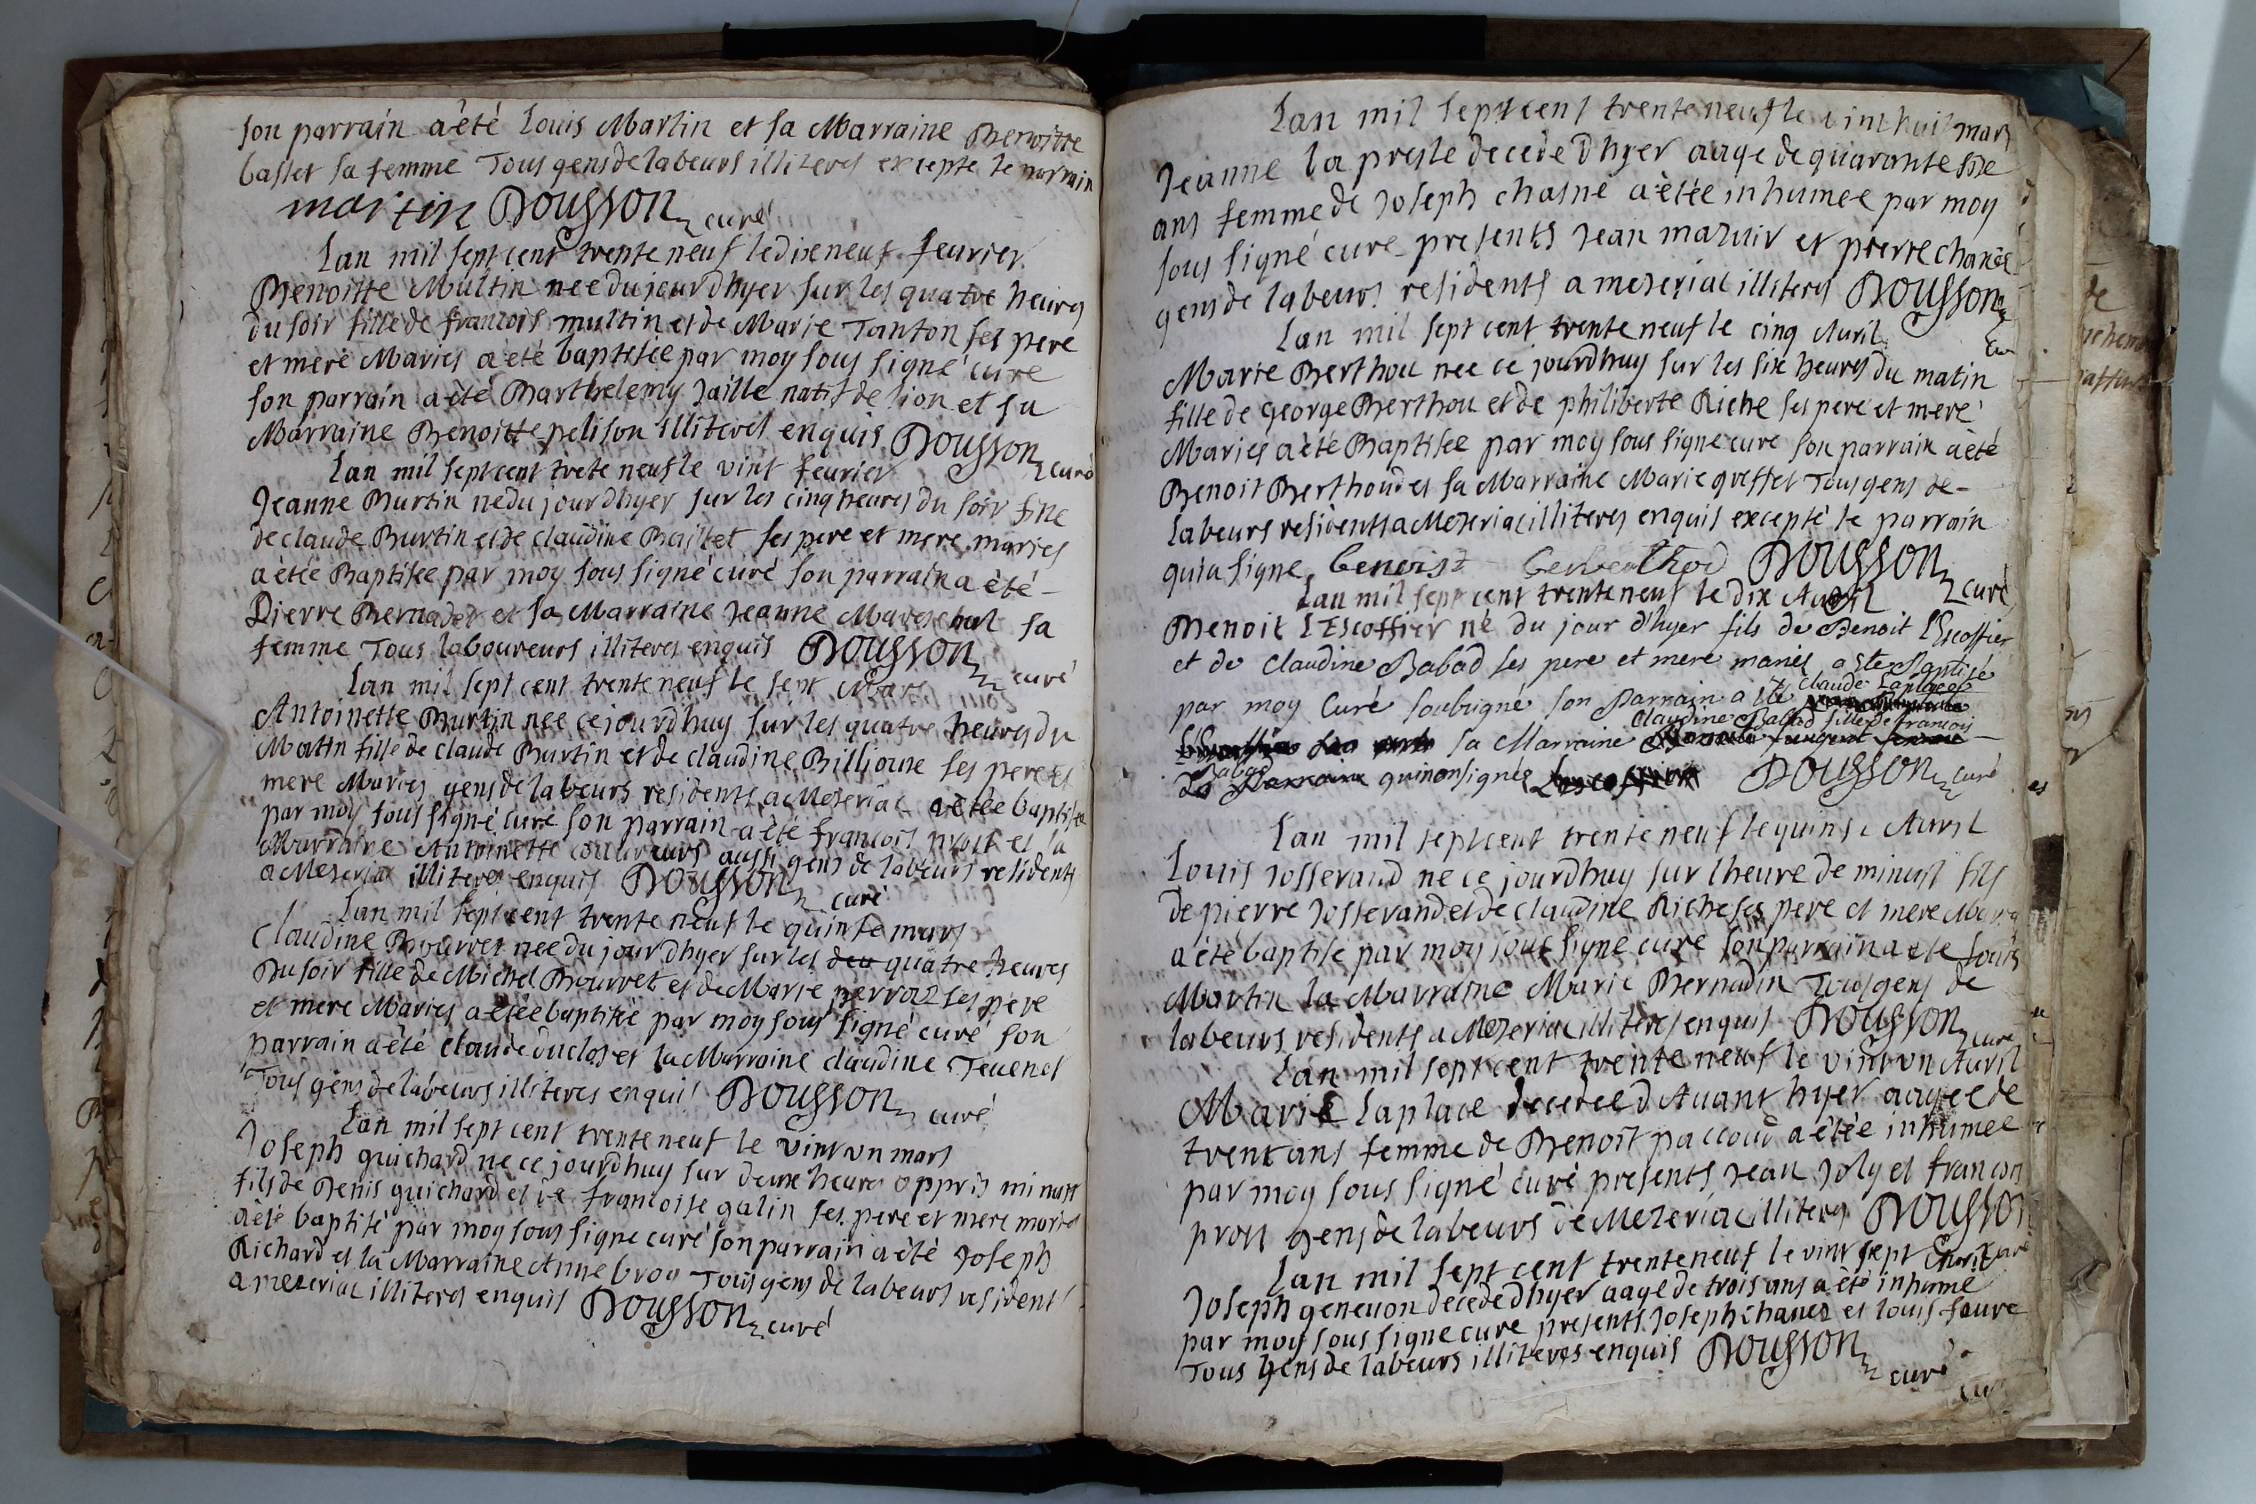 son parrain a èté Louis Martin et sa Marraine Benoitte
basset sa femme Tous gens de labeurs illiteres excepte le parrain
martin Dousson curé
Lan mil sept cent trente neuf le dixneuf feurier
Benoitte Multin nee du jour dhyer sur les quatre heures
du soir fille de francois multin et de Marie Tanton ses pere
et mere Maries a èté baptisée par moy sous signé curé
son parrain a èté Barthelemy Jaille natif de lion et sa
Marraine Benoitte pelison illiteres enquis Dousson curé
Lan mil sept cent trete neuf le vint feurier
Jeanne Burtin ne du jour dhyer sur les cinq heures du soir fille
de claude Burtin et de claudine Baillet ses pere et mere maries
a ètée Baptisée par moy sous signé curé son parrain a èté
Pierre Bernadet et sa Marraine Jeanne Mareschal sa
femme Tous laboureurs illiteres enquis Dousson curé
Lan mil sept cent trente neuf le sept Mars
Antoinette Burtin nee ce jourdhuy sur les quatre heures du
Matin fille de claude Burtin et de claudine Billioune ses pere et
mere Maries gens de labeurs residents a Mezeriac a ètée baptisée
par moy sous signé curé son parrain a èté francois prost et sa
Marraine Antoinette couureurs aussi gens de labeurs residents
a Mezeriac illiteres enquis Dousson curé
Lan mil sept cent trente neuf le quinse mars
Claudine Bourret nee du jour dhyer sur les deu quatre heures
Du soir fille de Michel Bourret et de Marie perroz ses pere
et mere Maries a ètée baptisée par moy sous signé curé son
parrain a èté claude duclos et la Marraine claudine Teuenet
Tous gens de labeurs illiteres enquis Dousson curé
Lan mil sept cent trente neuf le vint un mars
Joseph guichard ne ce jourdhuy sur deux heures appris minuit
fils de Denis guichard et de francoise galin ses pere et mere maries
a èté baptisé par moy sous signe curé son parrain a èté Joseph
Richard et la Marraine Anne broy Tous gens de labeurs resident
a mezeriac illiteres enquis Dousson curé
Lan mil sept cent trente neuf le vint huit mars
Jeanne la presle decede dhyer aage de quarante sixe
ans femme de Joseph chasne a ètée inhumee par moy
sous signé curé presents Jean mazuir et pierre chanel
gens de labeurs residents a mezeriac illiteres Dousson
Lan mil sept cent trente neuf le cinq Auril
Marie Berthou nee ce jourdhuy sur les six heures du matin
fille de george Berthou et de philiberte Riche ses pere et mere
Maries a èté Baptisee par moy sous signe cure son parrain a èté
Benoit Berthoud et sa Marraine Marie greffet Tous gens de
labeurs residents a Mezeriac illiteres enquis excepté le parrain
qui a signe benoist berberthod Dousson curé
Lan mil sept cent trente neuf le dix Auril
Benoit L'Escoffier né du jour d'hyer fils de Benoit l'Escoffier
et de Claudine Babad ses pere et mere mariés a èté Baptisé
par moy Curé soubsigné son Parrain a èté Claude Laplace
sa Marraine Claudine Babad fille de francois
Babad qui non signés Dousson curé
Lan mil sept cent trente neuf le quinse Auril
Louis Josserand ne ce jourdhuy sur lheure de minuit fils
de pierre Josserand et de claudine Riche ses pere et mere Maries
a èté baptisé par moy sous signé curé son parrain a èté Louis
Martin la Marraine Marie Bernadin Tous gens de
labeurs residents a Mezeriac illiteres enquis Dousson curé
Lan mil sept cent trente neuf le vint un Auril
Marie Laplace decedee d Auant hyer aagee de
trent ans femme de Benoit paccoud a ètée inhumee
par moy sous signé curé presents Jean Joly et francois
prost gens de labeurs de Mezeriac illiteres Dousson
curé
Lan mil sept cent trente neuf le vint sept Auril
Joseph geneuon decede dhyer aage de trois ans a èté inhume
par moy sous signe cure presents Joseph chanel et louis faure
Tous gens de labeurs illiteres enquis Dousson curé